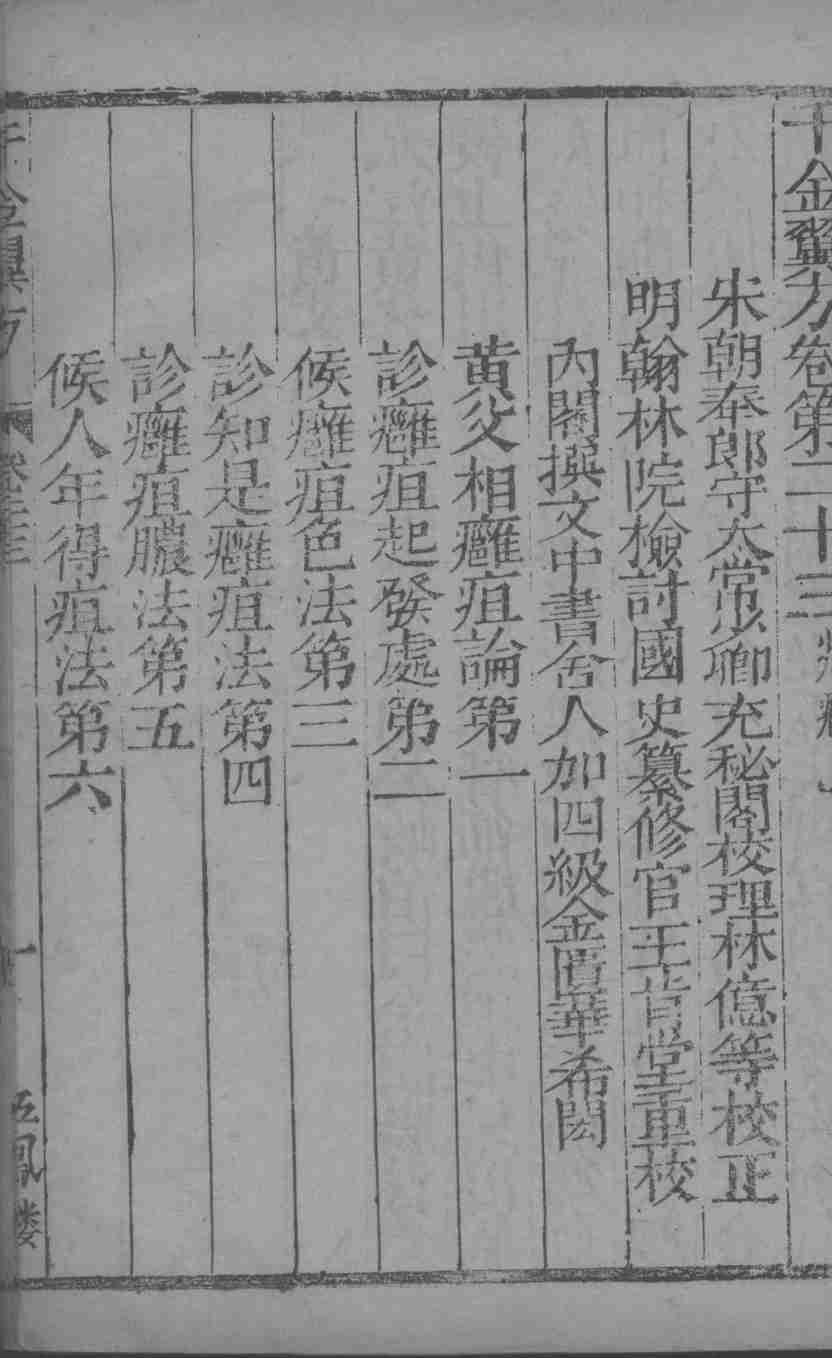 千金翼方卷第二十三
宋朝奉郎守太常少卿充秘閣校理林億等校正
明翰林院檢討國史纂修官王肯堂重校
內閣撰文中書舍人加四級金匱華希閎
黄父相癰疽論第一
診癰疽起發處第二
候癰疽色法第三
診知是癰疽法第四
診癰疽膿法第五
候人年得疽法第六
千金翼方